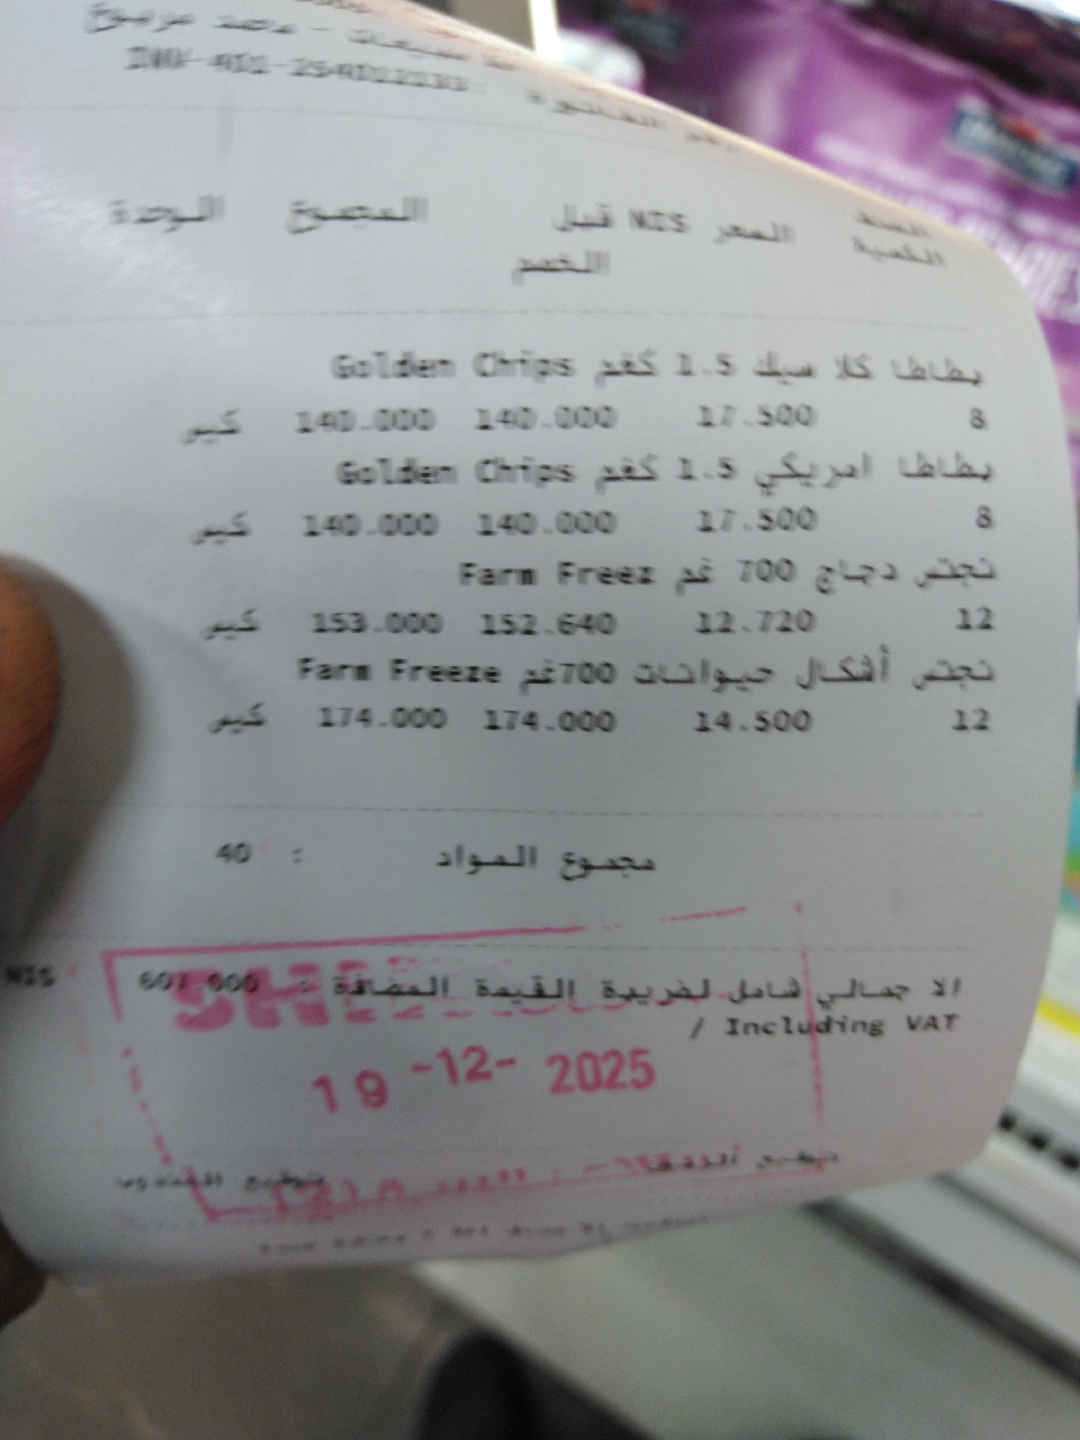 مبيعات - محمد مربوع
رقم الفاتورة : INV-401-254012233
الصنف السعر NIS قبل المجموع الوحدة
الكمية الخصم
بطاطا كلا سيك 1.5 كغم Golden Chips
8 17.500 140.000 140.000 كيس
بطاطا امريكي 1.5 كغم Golden Chips
8 17.500 140.000 140.000 كيس
نجتس دجاج 700 غم Farm Freez
12 12.720 152.640 153.000 كيس
نجتس أشكال حيوانات 700غم Farm Freeze
12 14.500 174.000 174.000 كيس
مجموع المواد : 40
الا جمالي شامل لضريبة القيمة المضافة : 607.000 NIS
/ Including VAT
19 -12- 2025
توقيع المندوب